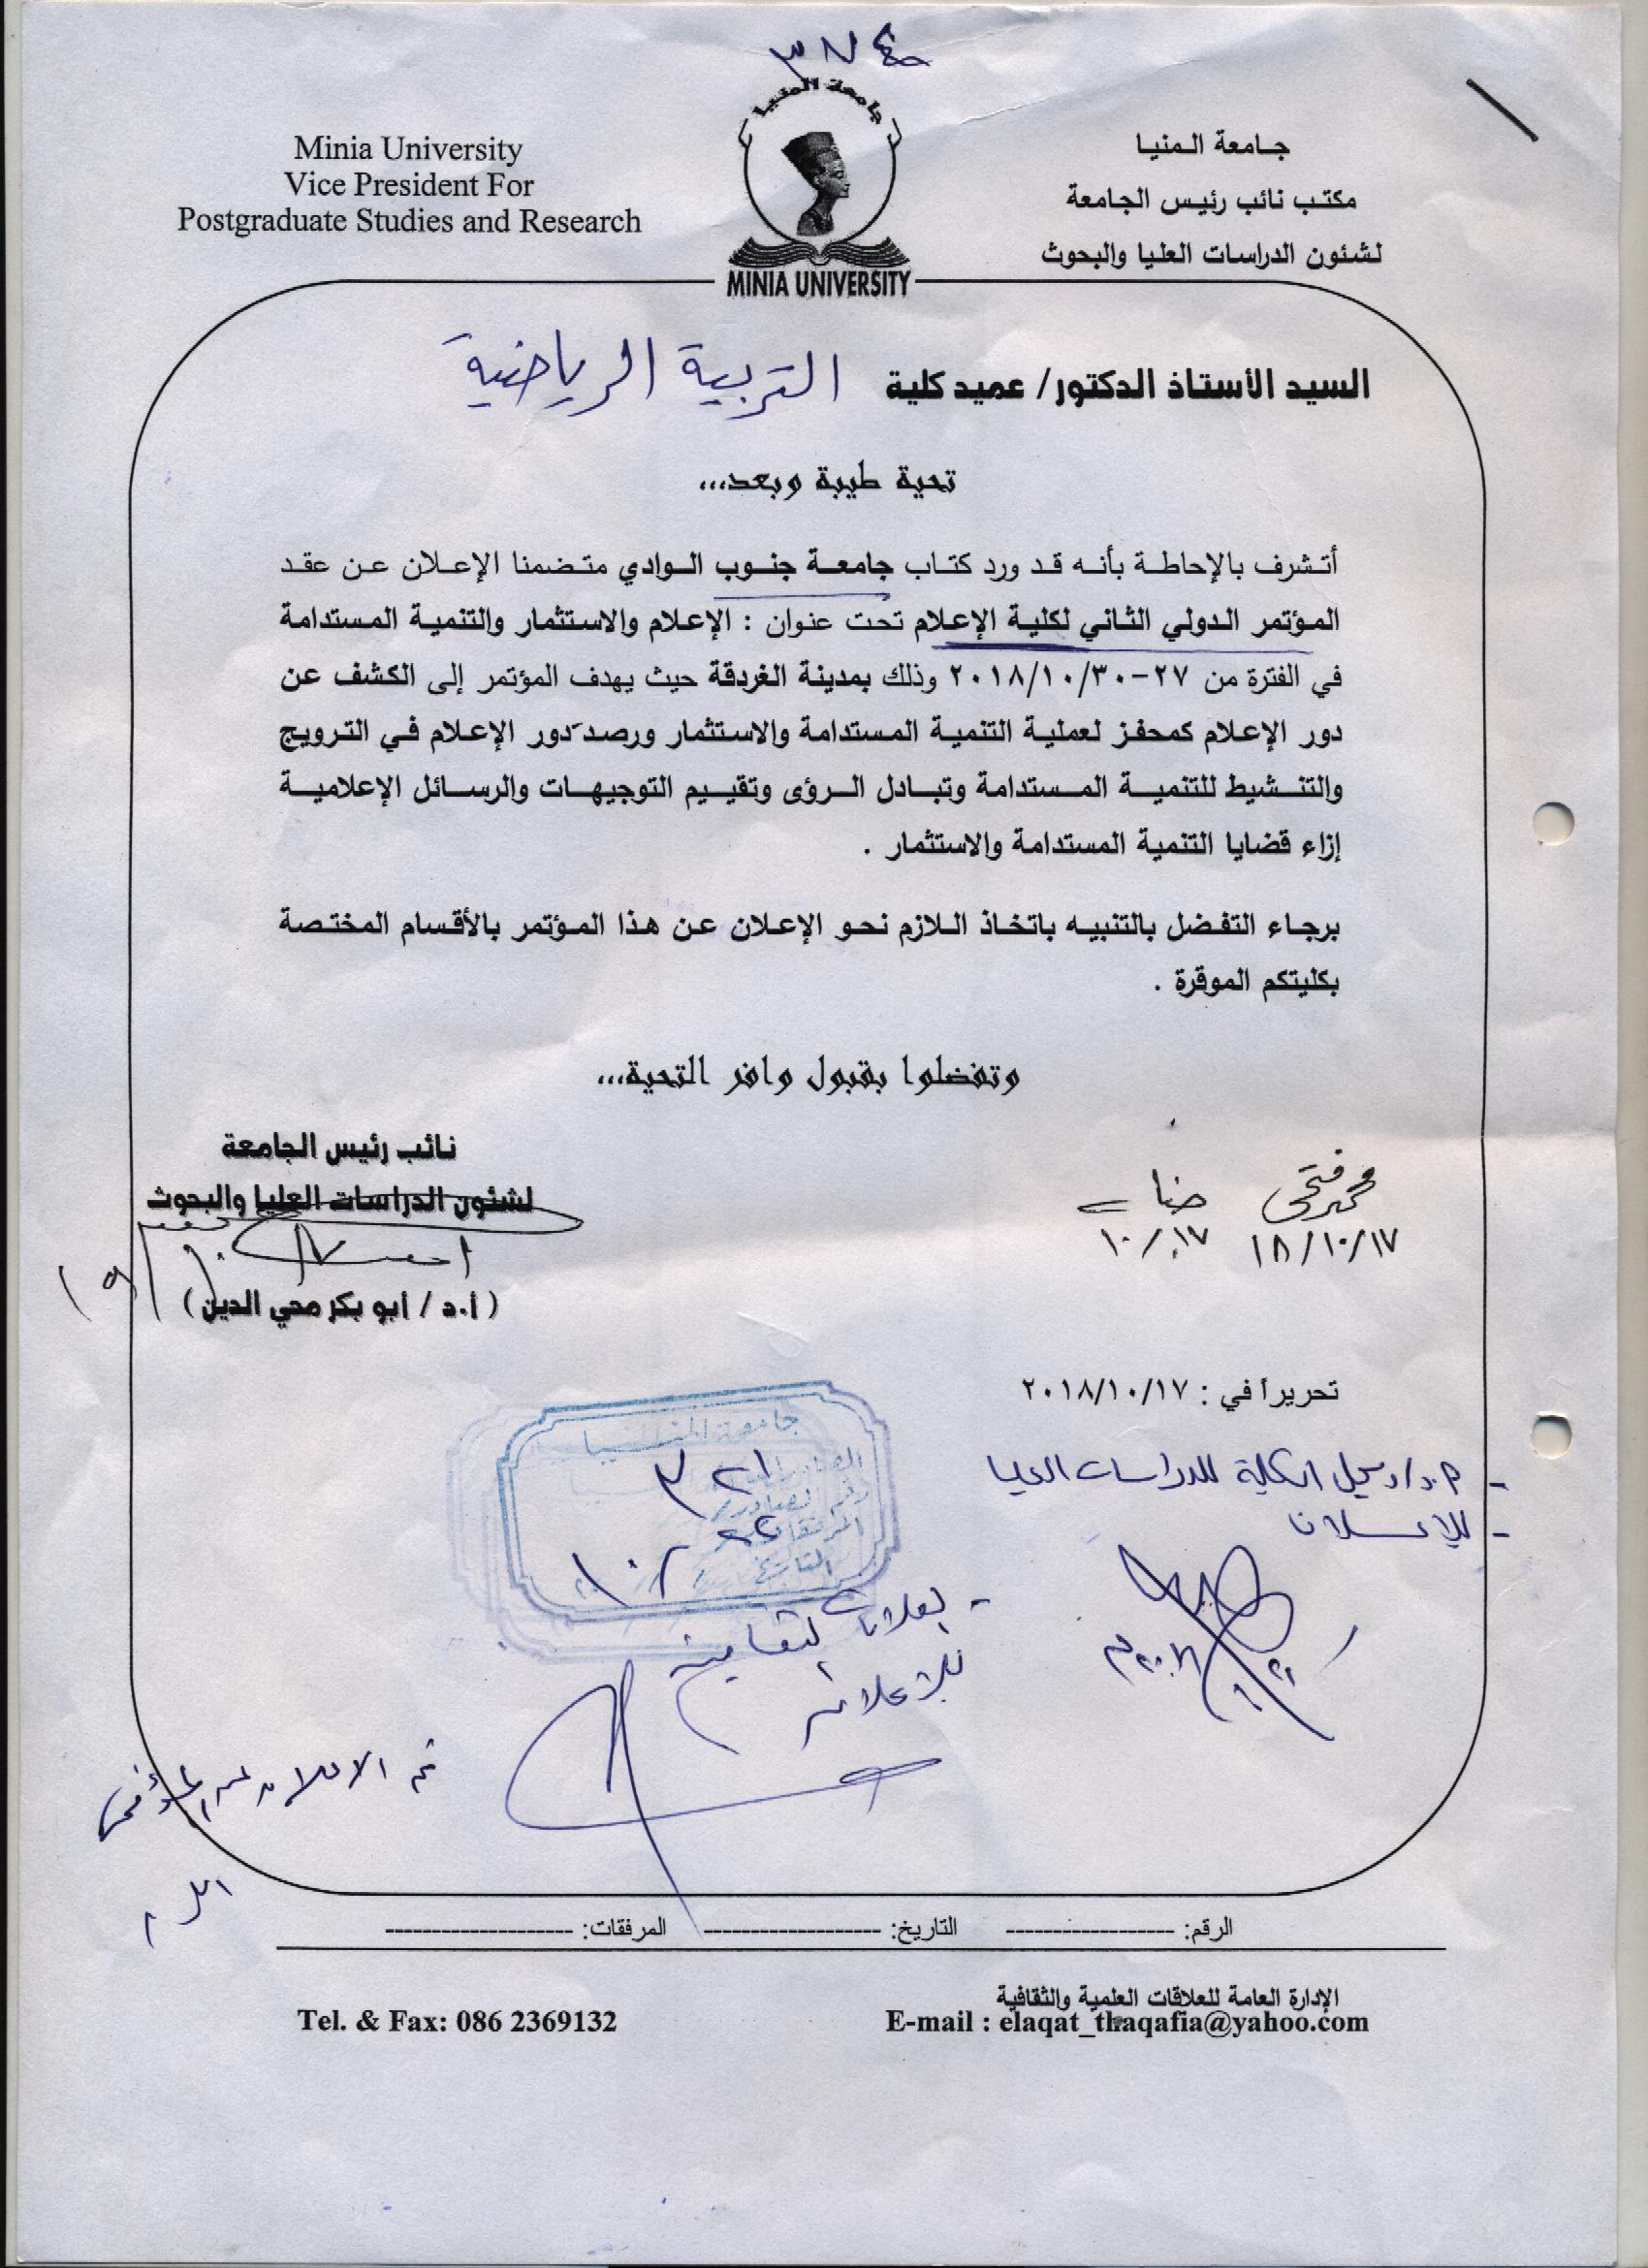 جامعة المنيا
Minia University
Vice President For
Postgraduate Studies and Research
MINIA UNIVERSITY
جامعة المنيا
مكتب نائب رئيس الجامعة
لشئون الدراسات العليا والبحوث
السيد الأستاذ الدكتور/ عميد كلية التربية الرياضية
تحية طيبة وبعد...
أتشرف بالإحاطة بأنه قد ورد كتاب جامعة جنوب الوادي متضمنا الإعلان عن عقد
المؤتمر الدولي الثاني لكلية الإعلام تحت عنوان : الإعلام والاستثمار والتنمية المستدامة
في الفترة من ٢٧-٢٠١٨/١٠/٣٠ وذلك بمدينة الغردقة حيث يهدف المؤتمر إلى الكشف عن
دور الإعلام كمحفز لعملية التنمية المستدامة والاستثمار ورصد دور الإعلام في الترويج
والتنشيط للتنمية المستدامة وتبادل الرؤى وتقييم التوجيهات والرسائل الإعلامية
إزاء قضايا التنمية المستدامة والاستثمار .
برجاء التفضل بالتنبيه باتخاذ اللازم نحو الإعلان عن هذا المؤتمر بالأقسام المختصة
بكليتكم الموقرة .
وتفضلوا بقبول وافر التحية...
نائب رئيس الجامعة
لشئون الدراسات العليا والبحوث
(أ.د / أبو بكر محي الدين)
محمد فتحى
١٨/١٠/١٧
١٠/١٧
تحريرأ في : ٢٠١٨/١٠/١٧
جامعة المنيا
التاريخ
٣٢١
- أ.د/ وكيل الكلية للدراسات العليا
- للإعلان
تم الاعلان عن المؤتمر
الرقم: ------------------ التاريخ: ------------------- المرفقات: --------------------
الإدارة العامة للعلاقات العلمية والثقافية
Tel. & Fax: 086 2369132
E-mail : elaqat_thaqafia@yahoo.com